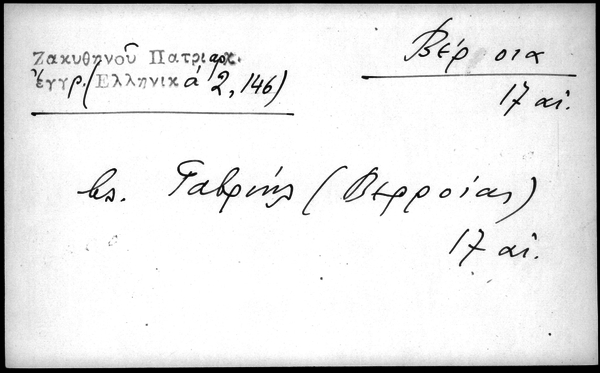 Ζακυθηνοῦ Πατριαρχ.
ἔγγρ. (Ἑλληνικά 2, 146)
Βέρροια
17 αἰ.
βλ. Γαβριήλ (Βερροίας)
17 αἰ.